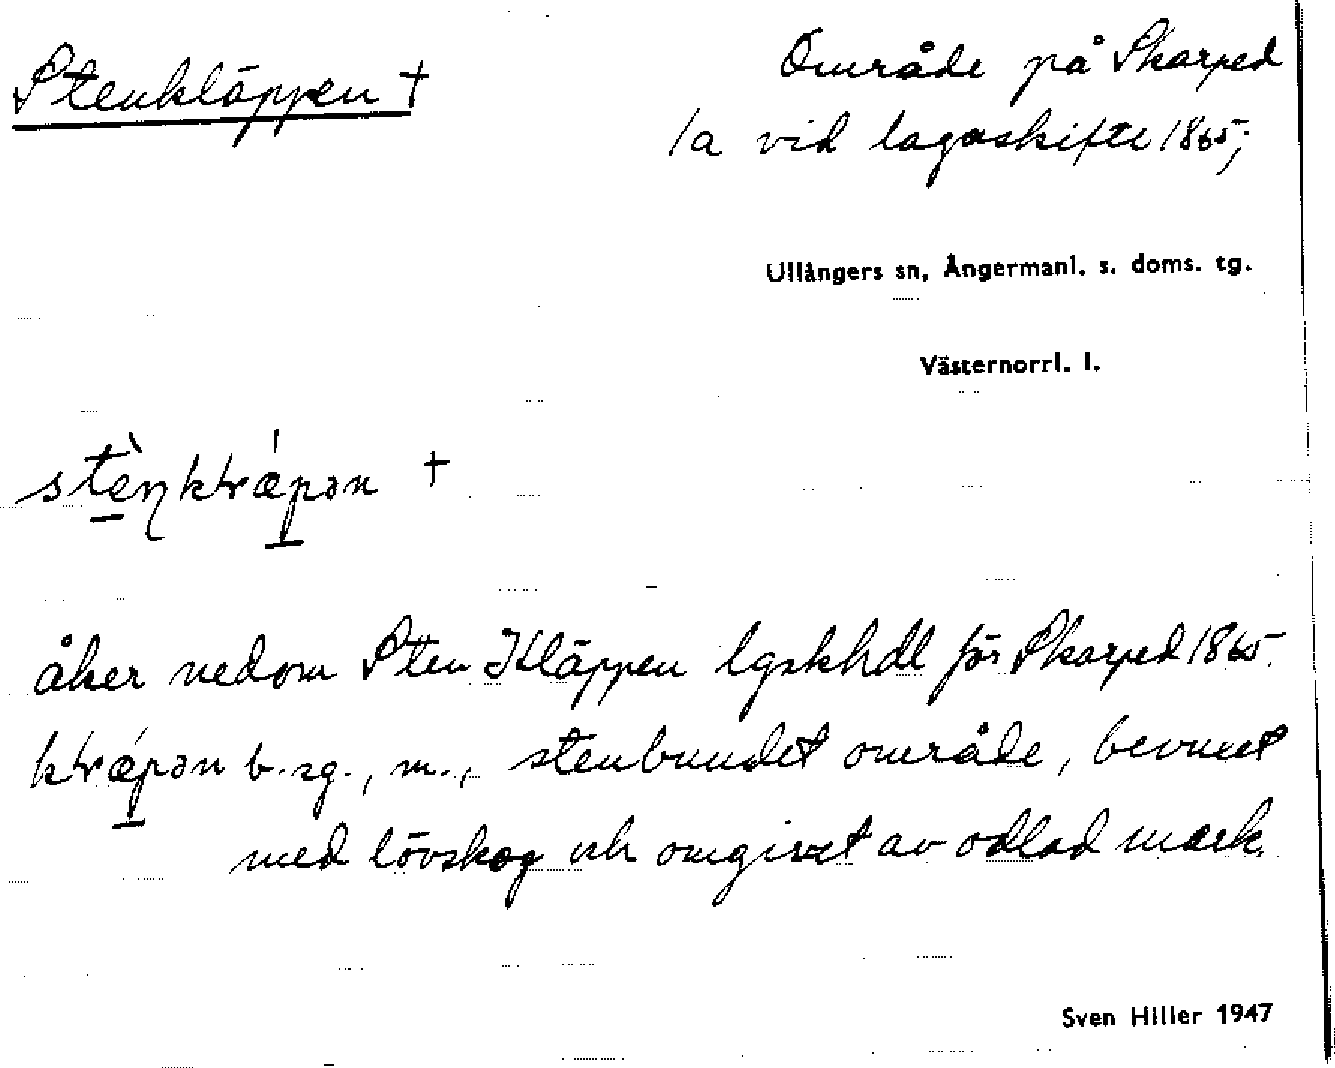 Stenkläppen †
Område på Skarped
1a vid lagaskifte 1865;
Ullångers sn, Ångermanl. s. doms. tg.
Västernorrl. l.
†
åker nedom Sten Kläppen lgskhdl för Skarped 1865.
b. sg., m., stenbundet område, bevuxet
med lövskog och omgivet av odlad mark.
Sven Hiller 1947